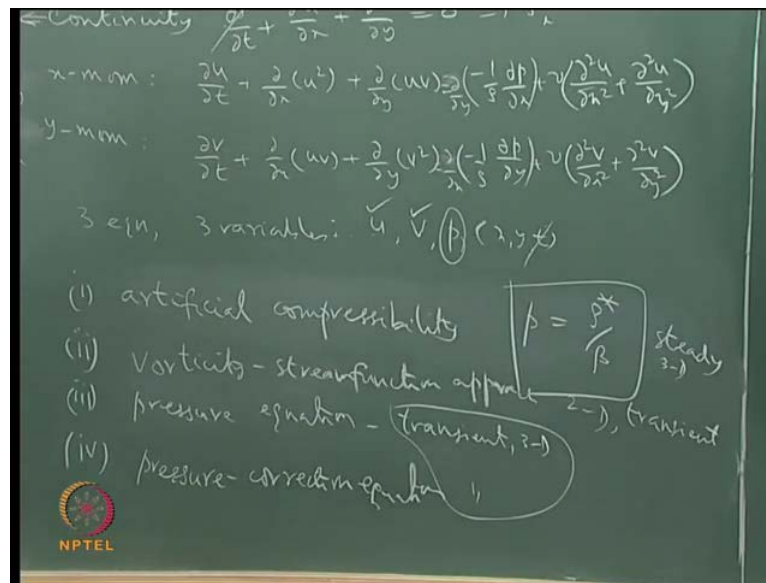 Continuity ∂ρ/∂t + ∂u/∂x + ∂v/∂y = 0
x-mom: ∂u/∂t + ∂/∂x (u²) + ∂/∂y (uv) = ∂/∂y (-1/ρ ∂p/∂x) + ν(∂²u/∂x² + ∂²u/∂y²)
y-mom: ∂v/∂t + ∂/∂x (uv) + ∂/∂y (v²) = ∂/∂x (-1/ρ ∂p/∂y) + ν(∂²v/∂x² + ∂²v/∂y²)
3 eqn, 3 variables: u, v, p (x, y, t)
(i) artificial compressibility p = ρ*/β steady 3-D
(ii) Vorticity - streamfunction approach 2-D, transient
(iii) pressure equation - transient, 3-D
(iv) pressure-correction equation "
NPTEL